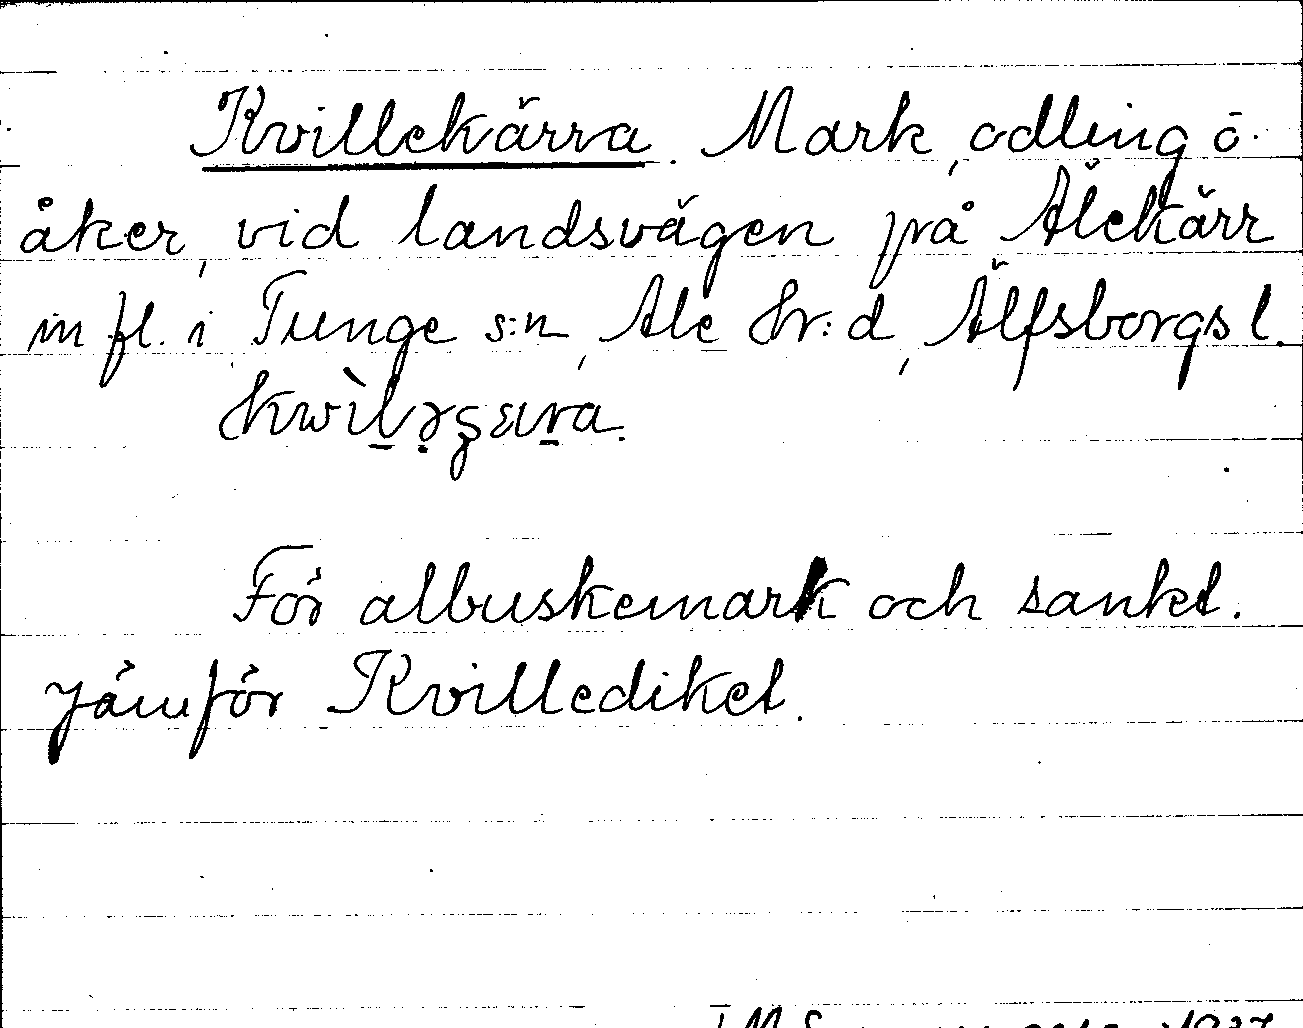 Kvillekärra. Mark, odling ö.
åker, vid landsvägen på Älekärr
m fl. i Tunge s:n, Ale Hr:d, Älfsborgs l.
För albuskemark och sankt.
Jämför Kvillediket.